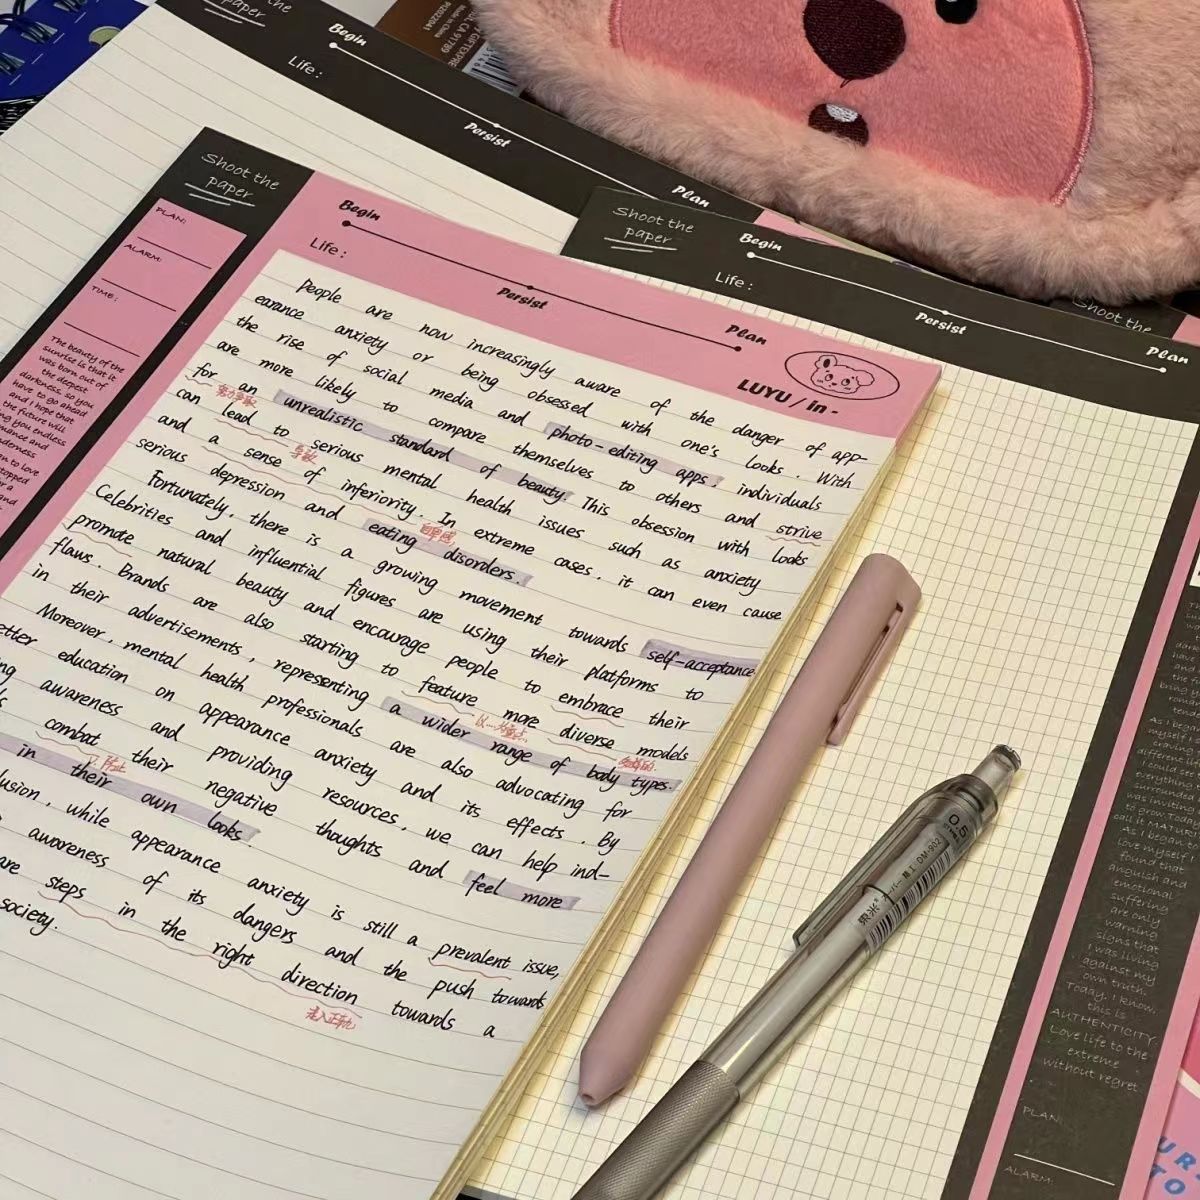 Shoot the
paper
Begin
Life :
Persist
Plan
LUYU / in -
PLAN:
ALARM:
TIME :
The beauty of the
sunrise is that it
was born out of
the deepest
darkness, so you
have to go ahead
and I hope that
the future will
People are now increasingly aware of the danger of app-
earance anxiety or being obsessed with one's looks. With
the rise of social media and photo-editing apps, individuals
are more likely to compare themselves to others and strive
for an unrealistic standard of beauty. This obsession with looks
can lead to serious mental health issues such as anxiety
and a sense of inferiority. In extreme cases, it can even cause
serious depression and eating disorders.
Fortunately, there is a growing movement towards self-acceptance
Celebrities and influential figures are using their platforms to
promote natural beauty and encourage people to embrace their
flaws. Brands are also starting to feature more diverse models
in their advertisements, representing a wider range of body types.
Moreover, mental health professionals are also advocating for
etter education on appearance anxiety and its effects. By
ng awareness and providing resources, we can help ind-
combat their negative thoughts and feel more
in their own looks.
lusion, while appearance anxiety is still a prevalent issue,
awareness of its dangers and the push towards
are steps in the right direction towards a
society.
努力争取
导致
自卑感
以...为重点
多样的
防止
走入正轨
Shoot the
paper
Begin
Life :
Persist
Plan
Shoot the
paper
Begin
Life :
Persist
Plan
Shoot the
CA 91789
Made in China
0.5
DM-902
As I began to
love myself I
found that
anguish and
emotional
suffering
are only
warning
signs that
I was living
against my
own truth.
Today, I know,
this is
AUTHENTICITY.
Love life to the
extreme
without regret
PLAN:
ALARM: